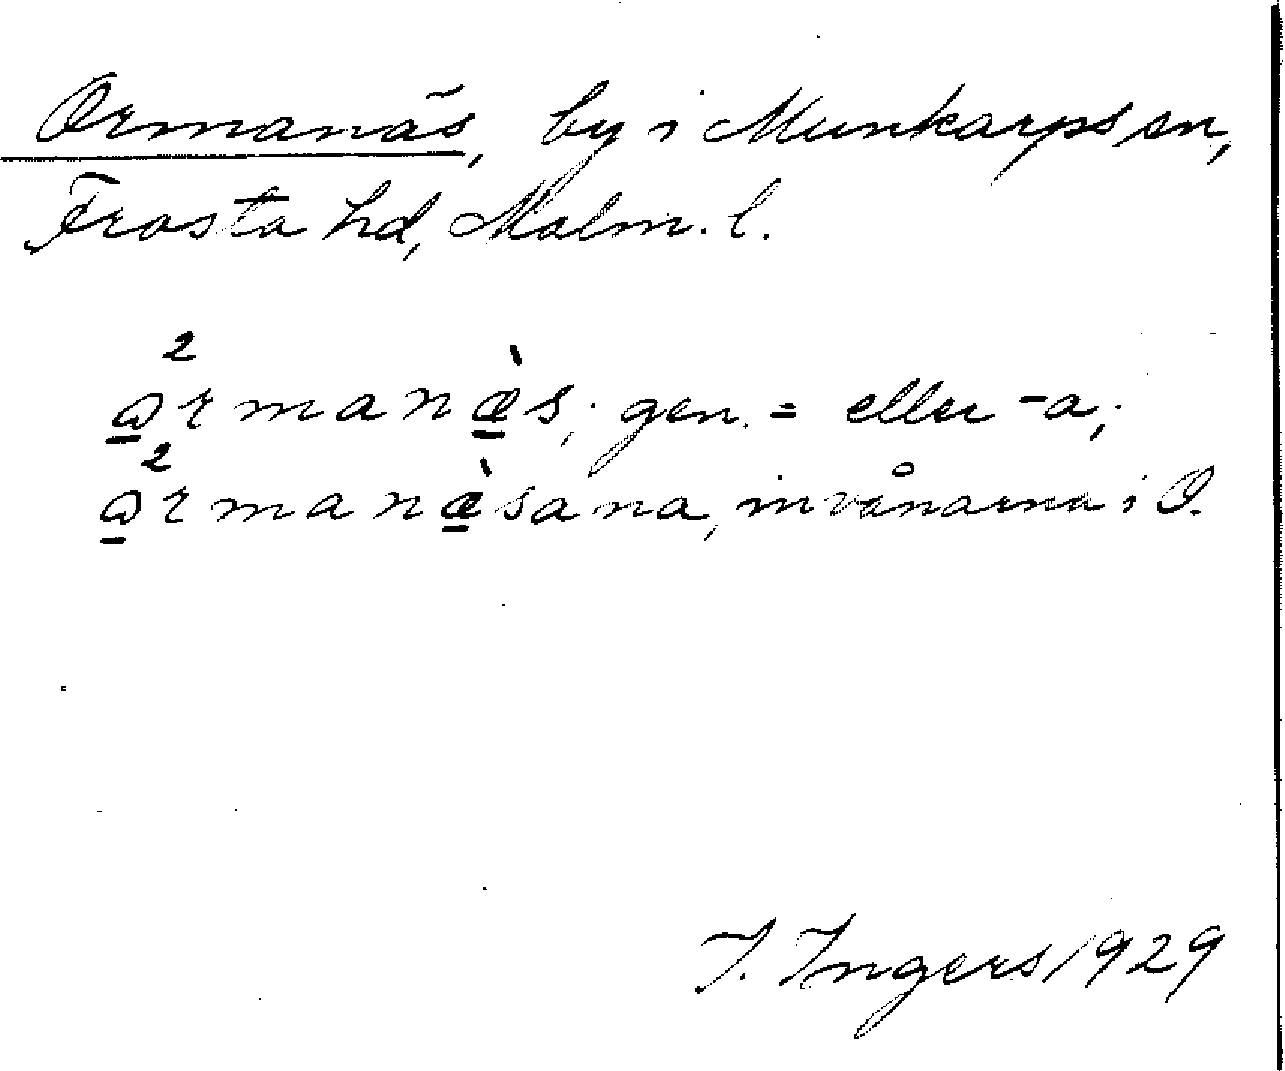 Ormanäs, by i Munkarps sn,
Frosta hd, Malm. l.
ɷ̲²rmanæ̲̀s, gen. = eller -a;
ɷ̲²rmanæ̲̀sana, invånarna i O.
I. Ingers 1929